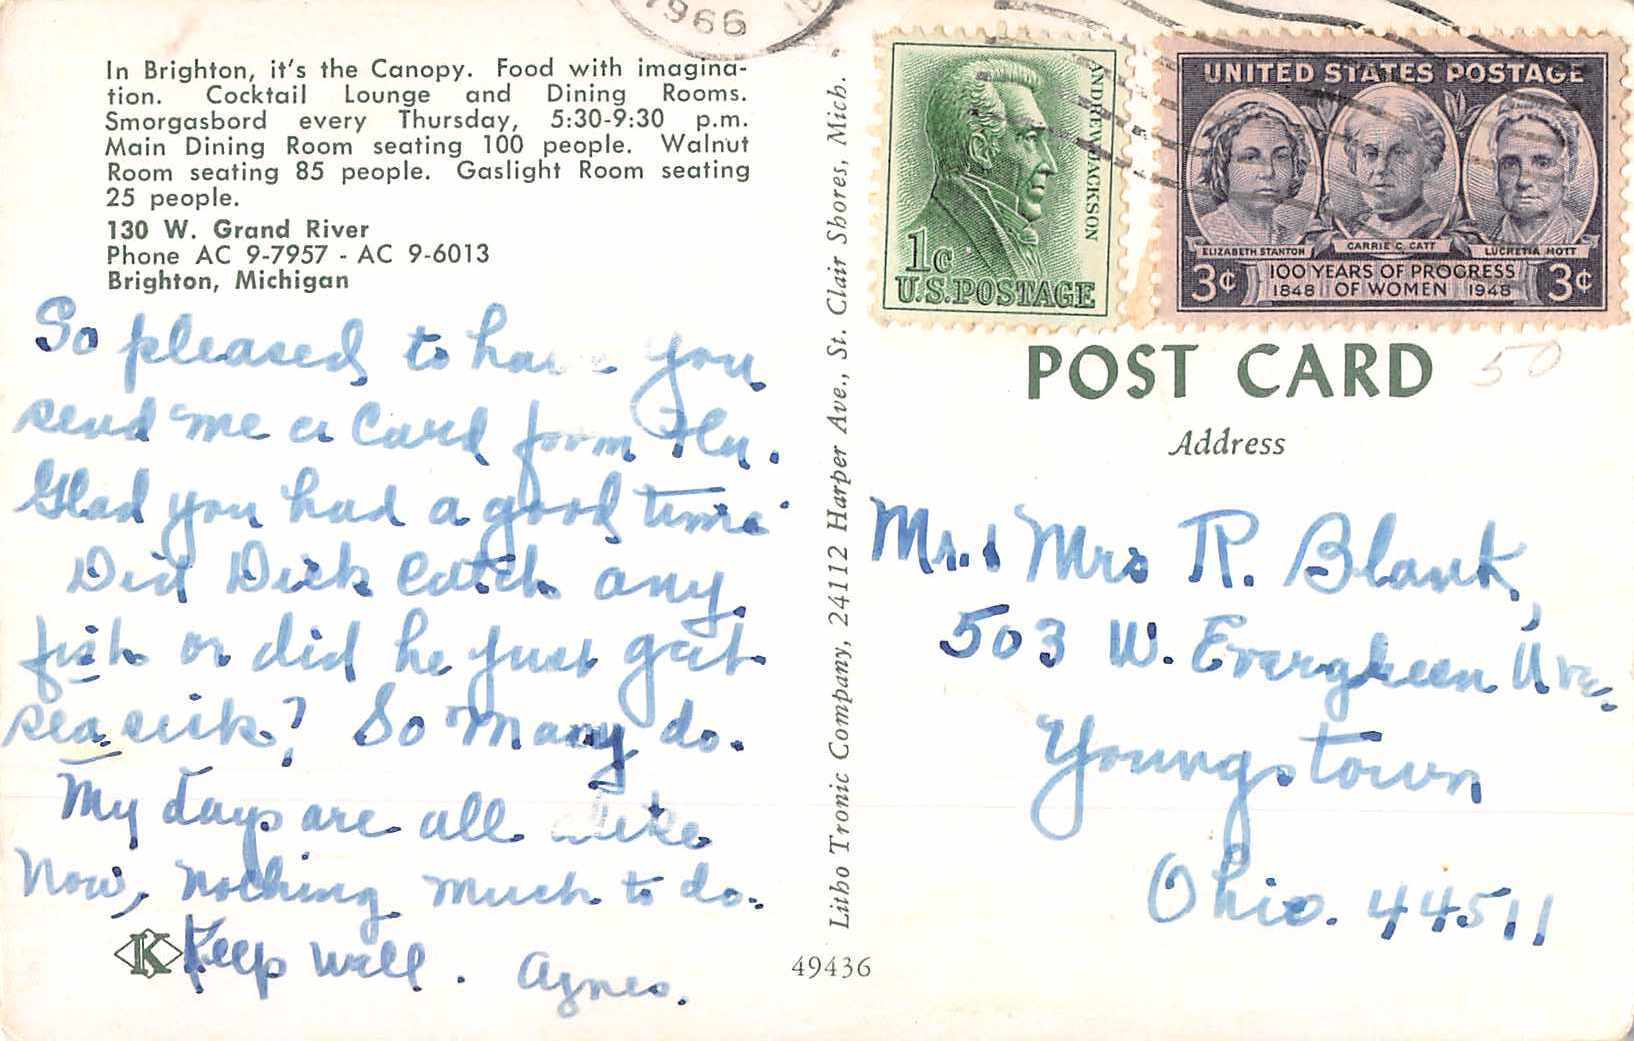 In Brighton, it's the Canopy. Food with imagina-
tion. Cocktail Lounge and Dining Rooms.
Smorgasbord every Thursday, 5:30-9:30 p.m.
Main Dining Room seating 100 people. Walnut
Room seating 85 people. Gaslight Room seating
25 people.
130 W. Grand River
Phone AC 9-7957 - AC 9-6013
Brighton, Michigan
So pleased to have you
send me a Card from Fla.
Glad you had a good time
Did Dick Catch any
fish or did he just get
sea sick? So many do.
My days are all alike
Now, nothing much to do.
K
Keep well. Agnes.
Litho Tronic Company, 24112 Harper Ave., St. Clair Shores, Mich.
49436
1966
ANDREW JACKSON
1c
U.S. POSTAGE
UNITED STATES POSTAGE
ELIZABETH STANTON
CARRIE C. CATT
LUCRETIA MOTT
3¢ 100 YEARS OF PROGRESS 3¢
1848 OF WOMEN 1948
POST CARD
50
Address
Mr. & Mrs R. Blank,
503 W. Evergreen Ave.
Youngstown
Ohio. 44511